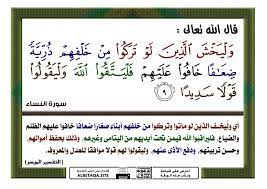 قال الله تعالى :
وَلْيَخْشَ الَّذِينَ لَوْ تَرَكُوا مِنْ خَلْفِهِمْ ذُرِّيَّةً
ضِعَافًا خَافُوا عَلَيْهِمْ فَلْيَتَّقُوا اللَّهَ وَلْيَقُولُوا
قَوْلًا سَدِيدًا ۹
سورة النساء
أي وليخف الذين لو ماتوا وتركوا من خلفهم أبناء صغارا ضعافا خافوا عليهم الظلم
والضياع، فليراقبوا الله فيمن تحت أيديهم من اليتامى وغيرهم، وذلك بحفظ أموالهم،
وحسن تربيتهم، ودفع الأذى عنهم، وليقولوا لهم قولا موافقا للعدل والمعروف.
(التفسير الميسر)
ALBETAQA.SITE